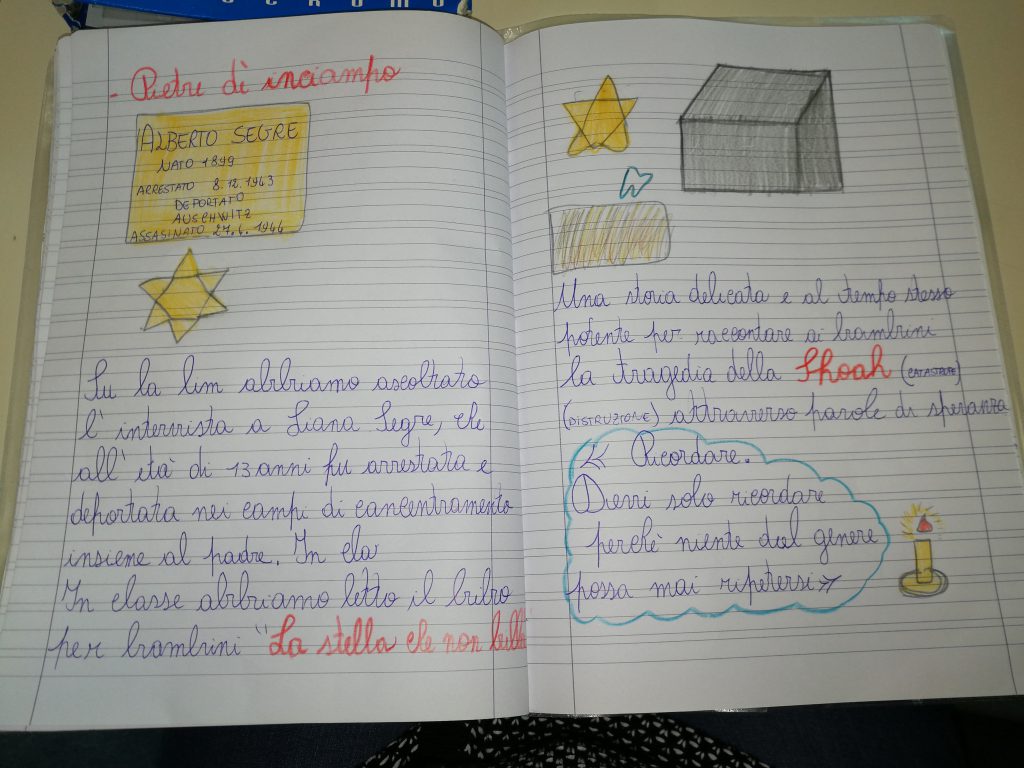 - Pietre di inciampo
ALBERTO SEGRE
NATO 1899
ARRESTATO 8.12.1943
DEPORTATO
AUSCHWITZ
ASSASINATO 27.4.1944
Su la lim abbiamo ascoltato
l'intervista a Liana Segre, che
all'età di 13 anni fu arrestata e
deportata nei campi di concentramento
insieme al padre. In cla
In classe abbiamo letto il libro
per bambini "La stella che non
Una storia delicata e al tempo stesso
potente per raccontare ai bambini
la tragedia della Shoah (CATASTROFE)
(DISTRUZIONE) attraverso parole di speranza
<< Ricordare.
Devi solo ricordare
perchè niente del genere
possa mai ripetersi >>